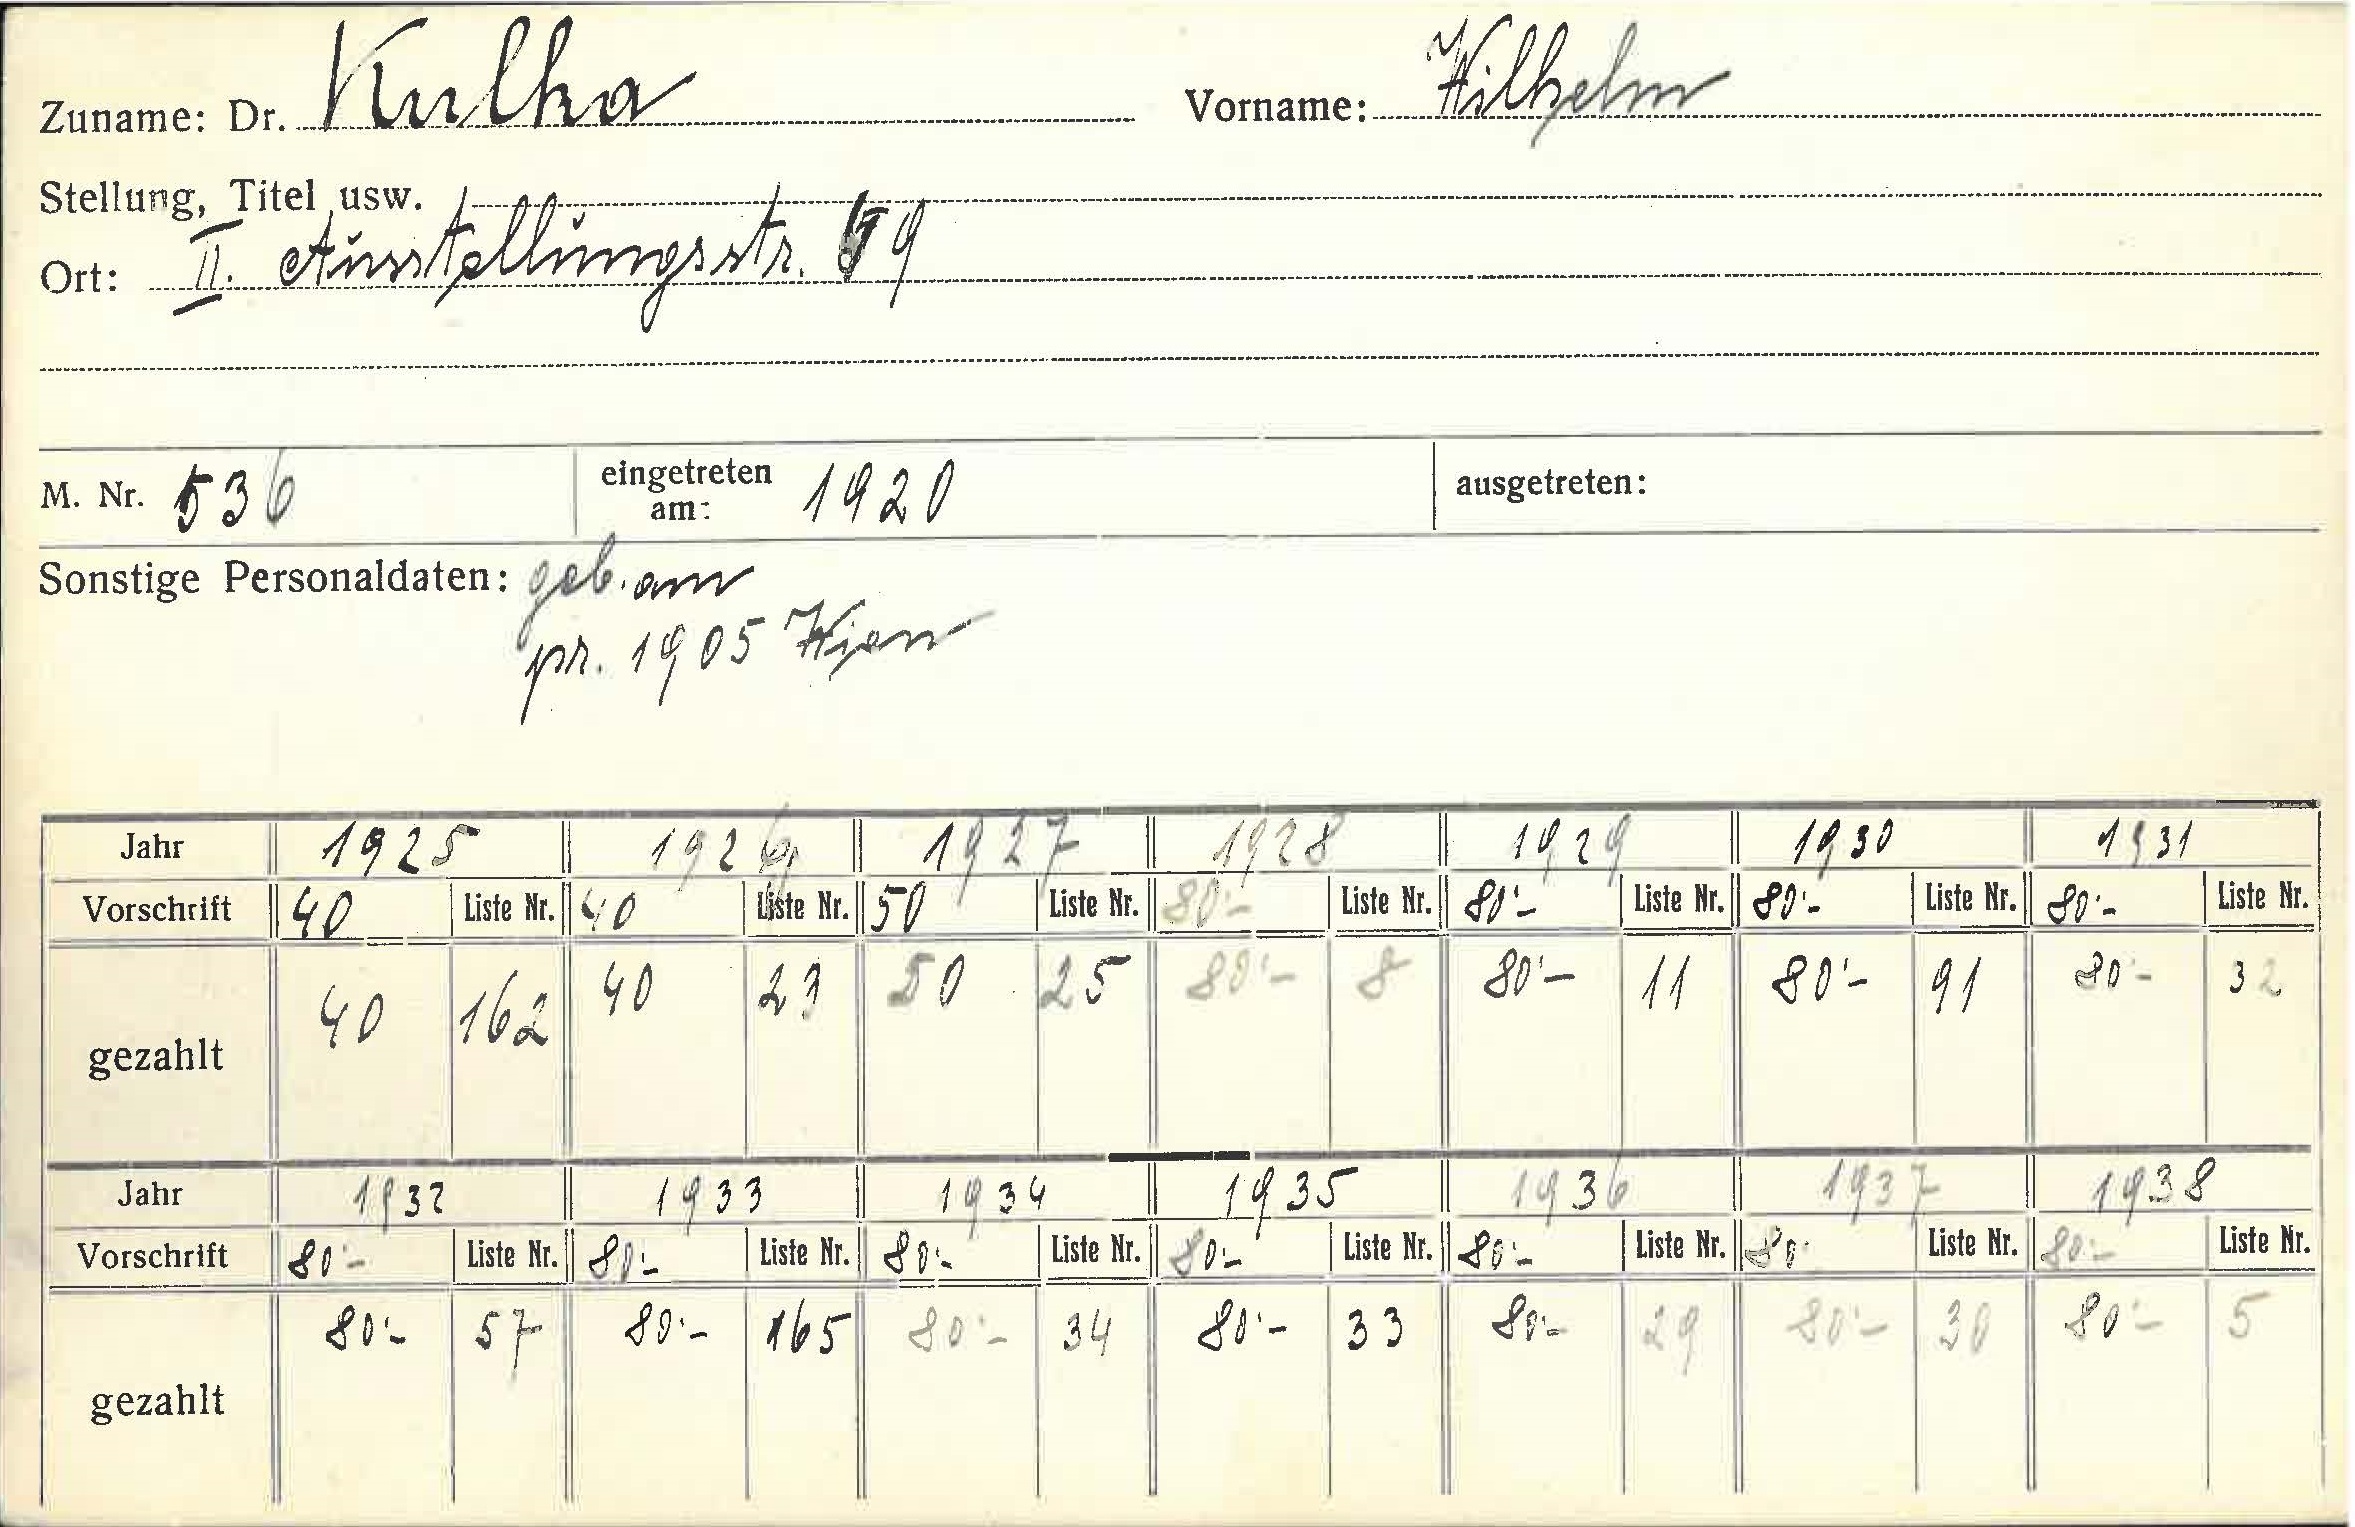 Zuname: Dr. Kulka Vorname: Wilhelm
Stellung, Titel usw.
Ort: II. Ausstellungsstr. 9
M. Nr. 536 eingetreten am: 1920 ausgetreten:
Sonstige Personaldaten: geb. am
pr. 1905 Wien
Jahr 1925 1926 1927 1928 1929 1930 1931
Vorschrift 40 Liste Nr. 40 Liste Nr. 50 Liste Nr. 80·- Liste Nr. 80·- Liste Nr. 80·- Liste Nr. 80·- Liste Nr.
gezahlt 40 162 40 23 50 25 80·- 8 80·- 11 80·- 91 80- 32
Jahr 1932 1933 1934 1935 1936 1937 1938
Vorschrift 80·- Liste Nr. 80·- Liste Nr. 80·- Liste Nr. 80·- Liste Nr. 80·- Liste Nr. 80· Liste Nr. 80·- Liste Nr.
gezahlt 80·- 57 80·- 165 80·- 34 80·- 33 80·- 29 80·- 30 80·- 5